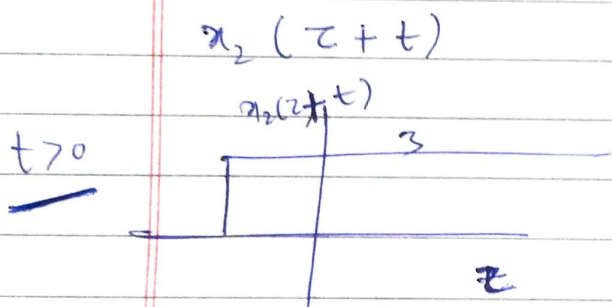 x₂ (τ + t)
x₂(τ+t)
t>0
3
τ